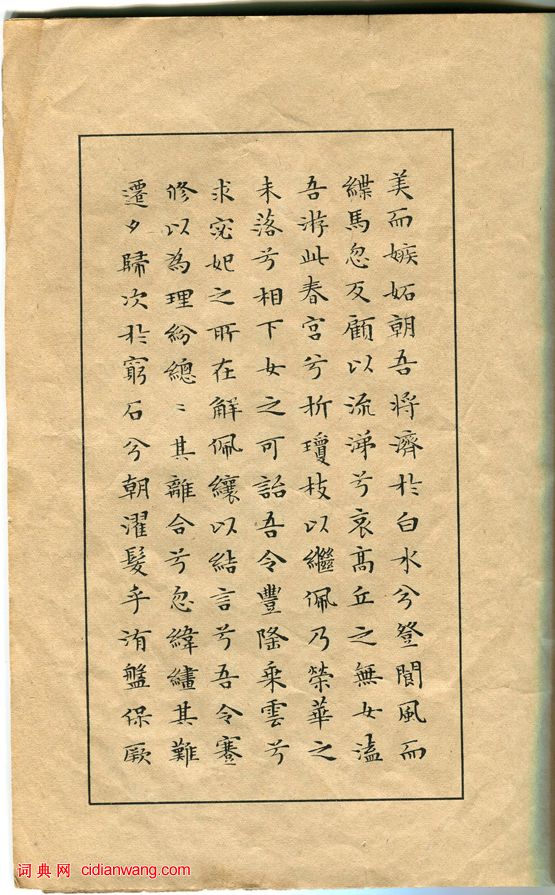 美而嫉妬朝吾将濟扵白水兮登閬風而
緤馬忽反顧以流涕兮哀髙丘之無女溘
吾游此春宮兮折瓊枝以繼佩乃榮華之
未落兮相下女之可詒吾令豐隆乘雲兮
求宓妃之所在解佩纕以結言兮吾令蹇
修以為理紛總〻其離合兮忽緯繣其難
遷夕歸次扵窮石兮朝濯髮乎洧盤保厥
词典网 cidianwang.com